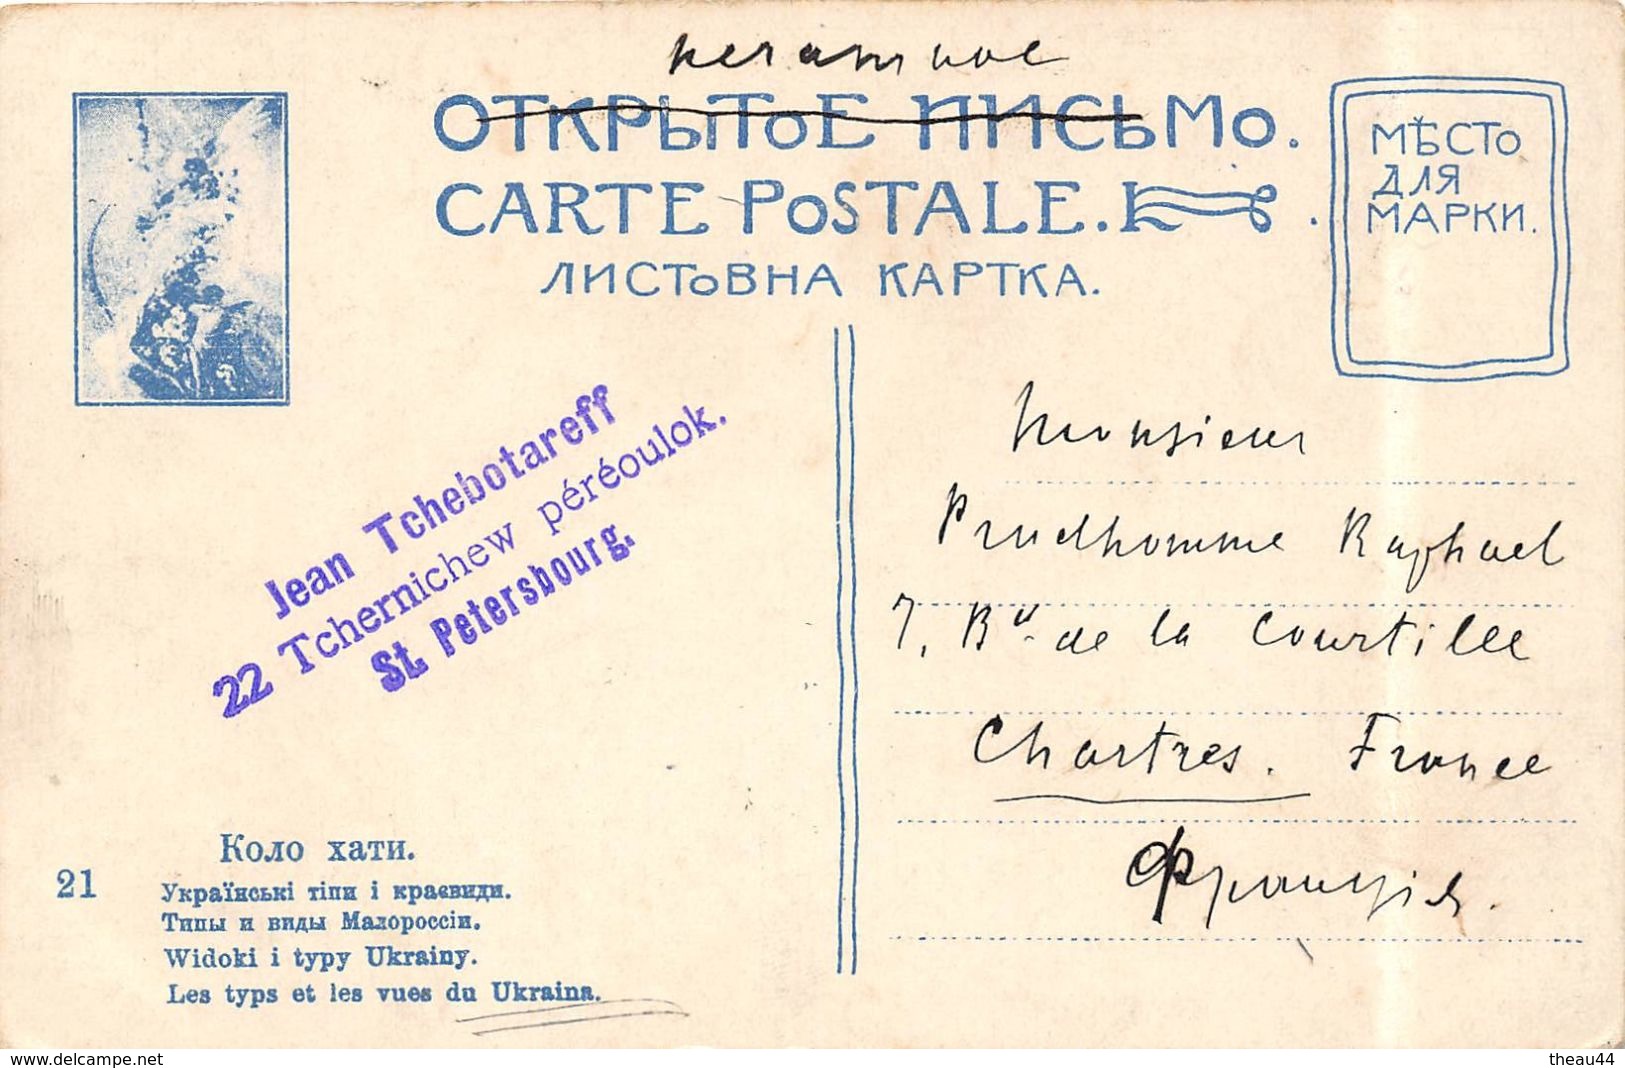 печатное
ОТКРЫТОЕ ПИСЬМО.
CARTE POSTALE.
ЛИСТОВНА КАРТКА.
МѢСТО
ДЛЯ
МАРКИ.
Jean Tchebotareff
22 Tchernichew péréoulok.
St. Petersbourg.
Monsieur
Prudhomme Raphael
7, Bd de la Courtille
Chartres. France
Франція.
Коло хати.
21
Українські тіпи і краєвиди.
Типы и виды Малороссіи.
Widoki i typy Ukrainy.
Les typs et les vues du Ukraina.
www.delcampe.net
theau44